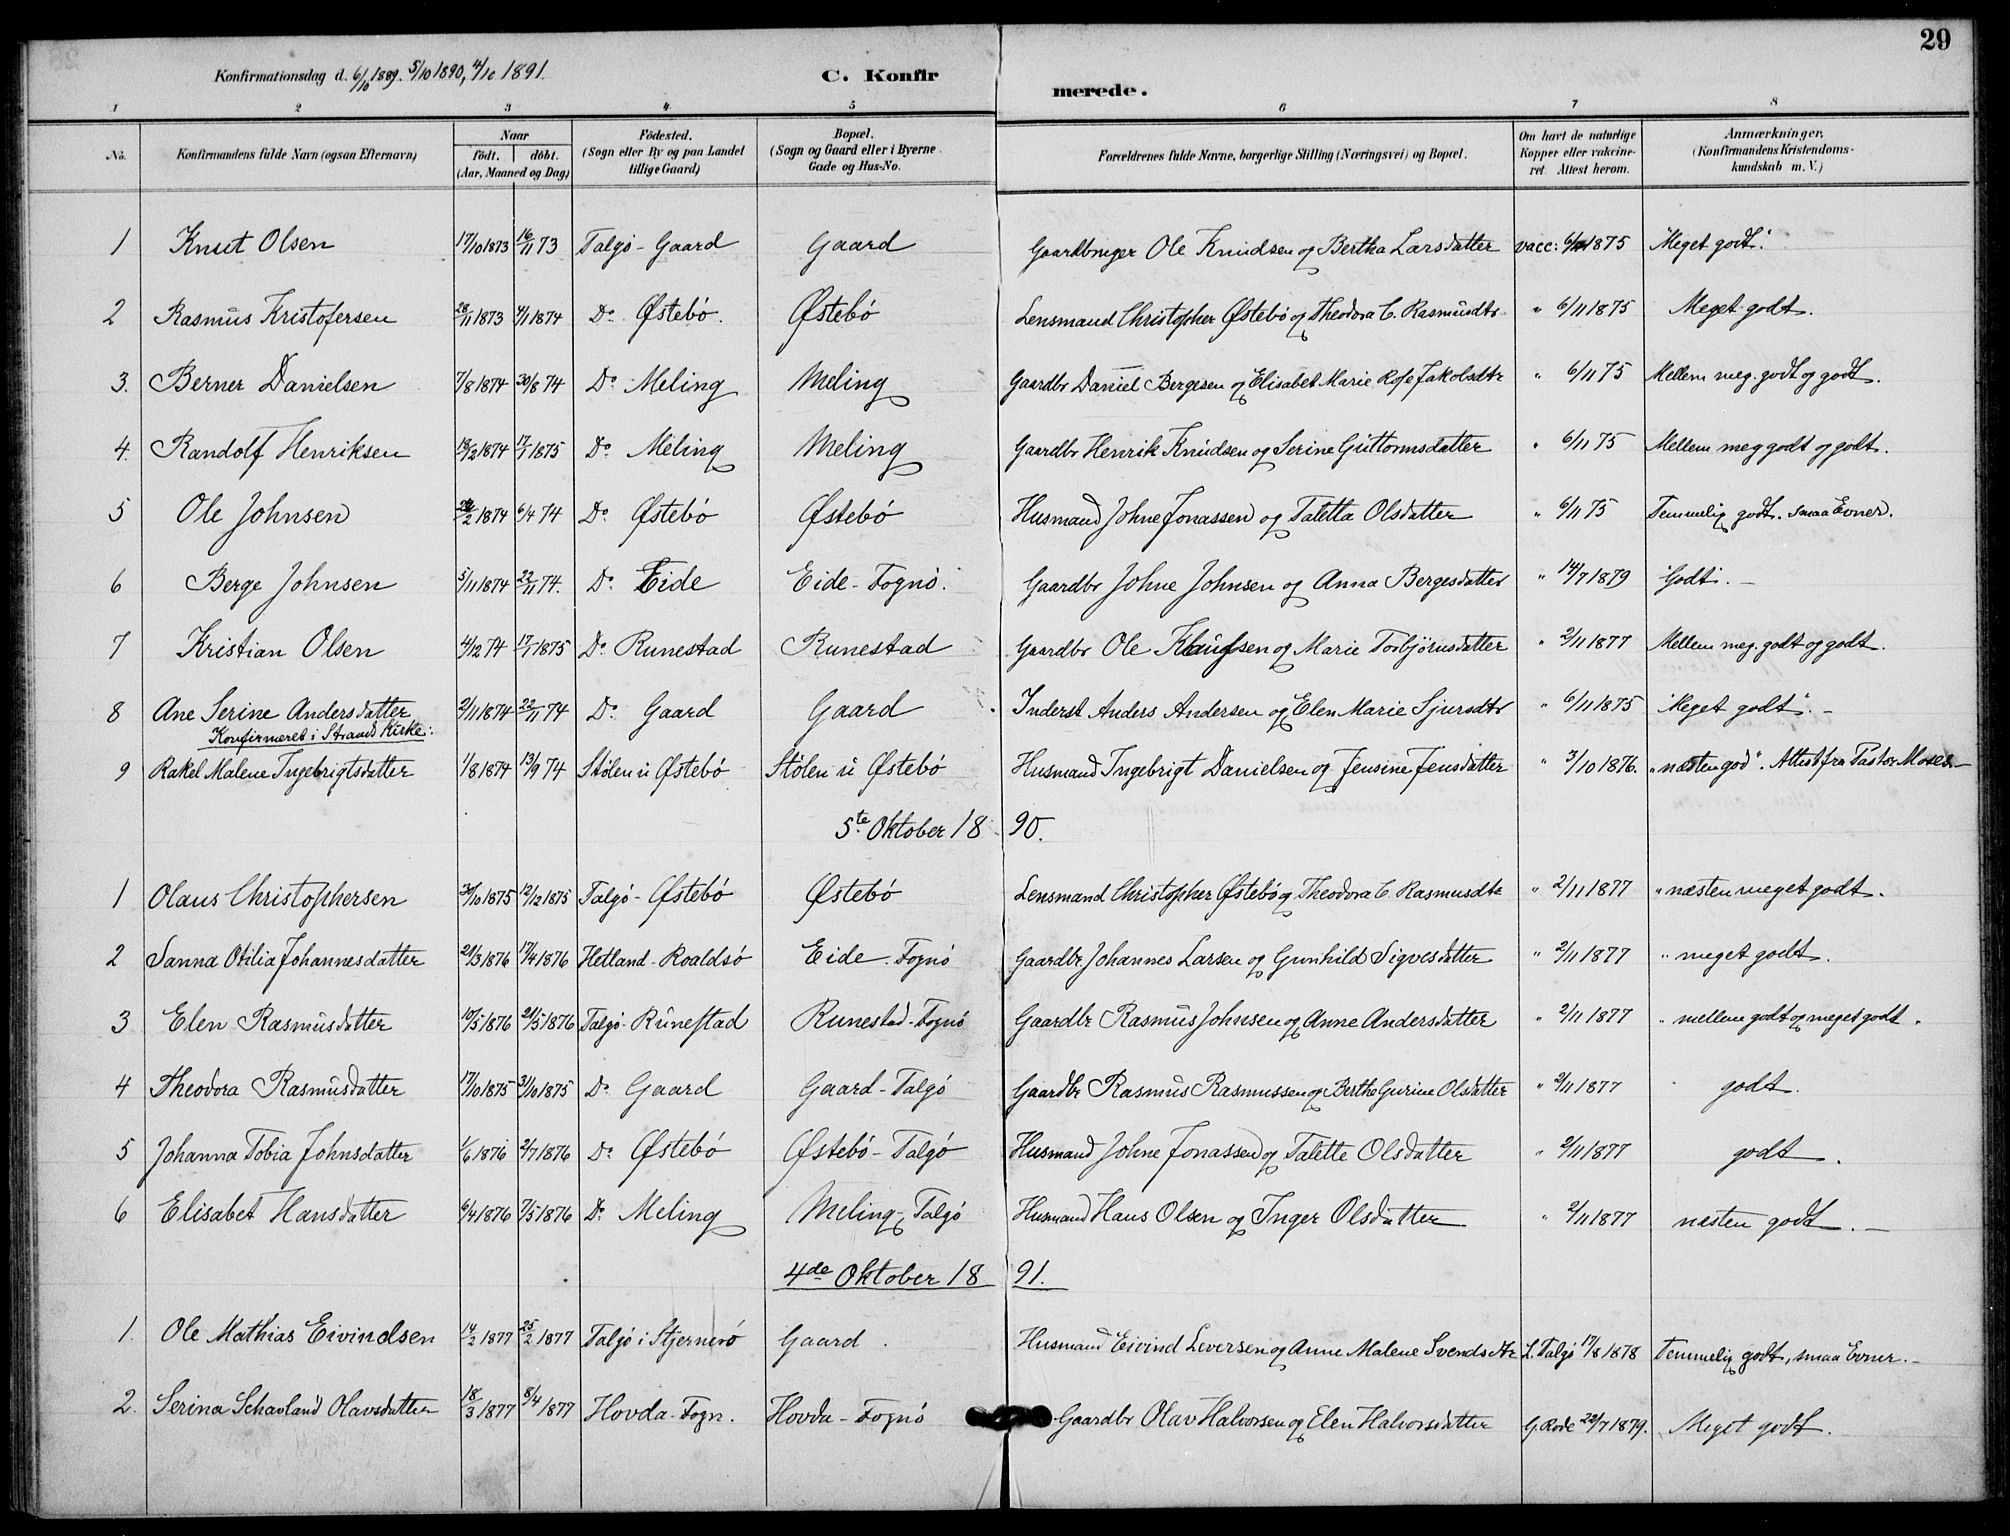 29
Konfirmationsdag d. 6/10 1889. 5/10 1890, 4/10 1891.
C. Konfirmerede.
1 2 3 4 5 6 7 8
No. | Konfirmandens fulde Navn (ogsaa Efternavn) | Naar födt. | döbt. (Aar, Maaned og Dag) | Födested. (Sogn eller By og paa Landet tillige Gaard) | Bopæl. (Sogn og Gaard eller i Byerne Gade og Hus-No. | Forældrenes fulde Navne, borgerlige Stilling (Næringsvei) og Bopæl. | Om havt de naturlige Kopper eller vakcineret. Attest herom. | Anmærkninger. (Konfirmandens Kristendomskundskab m. V.)
1 Knut Olsen 17/10 1873 16/11 73 Talgö - Gaard Gaard Gaardbruger Ole Knudsen og Bertha Larsdatter vacc: 6/11 1875 "Meget godt".
2 Rasmus Kristofersen 28/11 1873 4/1 1874 Do Østebö. Østebö Lensmand Christopher Østebö og Theodora C. Rasmusdtr " 6/11 1875 Meget godt.
3. Berner Danielsen 7/8 1874 30/8 74 Do Meling Meling Gaardbr Daniel Bergesen og Elisabet Marie Rose Jakobsdtr " 6/11 75 Mellem meg. godt og godt.
4. Randolf Henriksen 18/12 1874 17/1 1875 Do Meling Meling Gaardbr Henrik Knudsen og Serine Guttormsdatter " 6/11 75 Mellem meg godt og godt.
5 Ole Johnsen 24/2 1874 6/4 74 Do Østebö Østebö Husmand Johne Jonassen og Taletta Olsdatter " 6/11 75 Temmelig godt. smaa Evner.
6 Berge Johnsen 5/11 1874 22/11 74. Do Eide Eide - Fognö. Gaardbr Johne Johnsen og Anna Bergesdatter " 14/7 1879 "Godt". -
7 Kristian Olsen 4/12 74 17/1 1875 Do Runestad Runestad Gaardbr Ole Klausen og Marie Torbjörnsdatter " 2/11 1877 Mellem meg. godt og godt.
8 Ane Serine Andersdatter 2/11 1874 22/11 74 Do Gaard Gaard Inderst Anders Andersen og Elen Marie Sjursdtr " 6/11 1875 "Meget godt". -
Konfirmeret i Strand Kirke:
9 Rakel Malene Ingebrigtsdatter 1/8 1874 13/9 74 Stölen u Østebö Stölen u Østebö Husmand Ingebrigt Danielsen og Jensine Jensdatter " 3/10 1876. "næsten god". Attest fra Pastor Moses. -
5te Oktober 1890.
1 Olaus Christophersen 30/10 1875 12/12 1875 Talgö - Østebö Østebö Lensmand Christopher Østebö og Theodora C. Rasmusdtr " 2/11 1877 " næsten meget godt.
2 Sanna Otilia Johannesdatter 24/3 1876 17/4 1876 Hetland - Roaldsö Eide. Fognö Gaardbr. Johannes Larsen og Gunhild Sigvesdatter " 2/11 1877 " meget godt.
3 Elen Rasmusdatter 10/5 1876 21/5 1876 Talgö - Runestad Runestad - Fognö Gaardbr Rasmus Johnsen og Anne Andersdatter " 2/11 1877 " mellem godt og meget godt.
4 Theodora Rasmusdatter 17/10 1875 31/10 1875 Do Gaard Gaard - Talgö Gaardbr Rasmus Rasmussen og Berthe Gurine Olsdatter " 2/11 1877 godt.
5 Johanna Tobia Johnsdatter 1/6 1876 2/7 1876 Do Østebö Østebö - Talgö Husmand Johne Jonassen og Talette Olsdatter " 2/11 1877 godt.
6 Elisabet Hansdatter 6/4 1876 7/5 1876 Do Meling Meling - Talgö Husmand Hans Olsen og Inger Olsdatter " 2/11 1877 næsten godt. -
4de Oktober 1891.
1. Ole Mathias Eivindsen 14/2 1877 25/2 1877 Talgö i Stjernerö Gaard. Husmand Eivind Leversen og Anne Malene Svendsdtr L. Talgö 17/8 1878 Temmelig godt, smaa Evner. -
2. Serina Schavland Olavsdatter 18/3 1877 8/4 1877 Hovda - Fogn. Hovda - Fognö Gaardbr Olav Halvorsen og Elen Halvorsdatter G. Rode 22/7 1879. Meget godt.